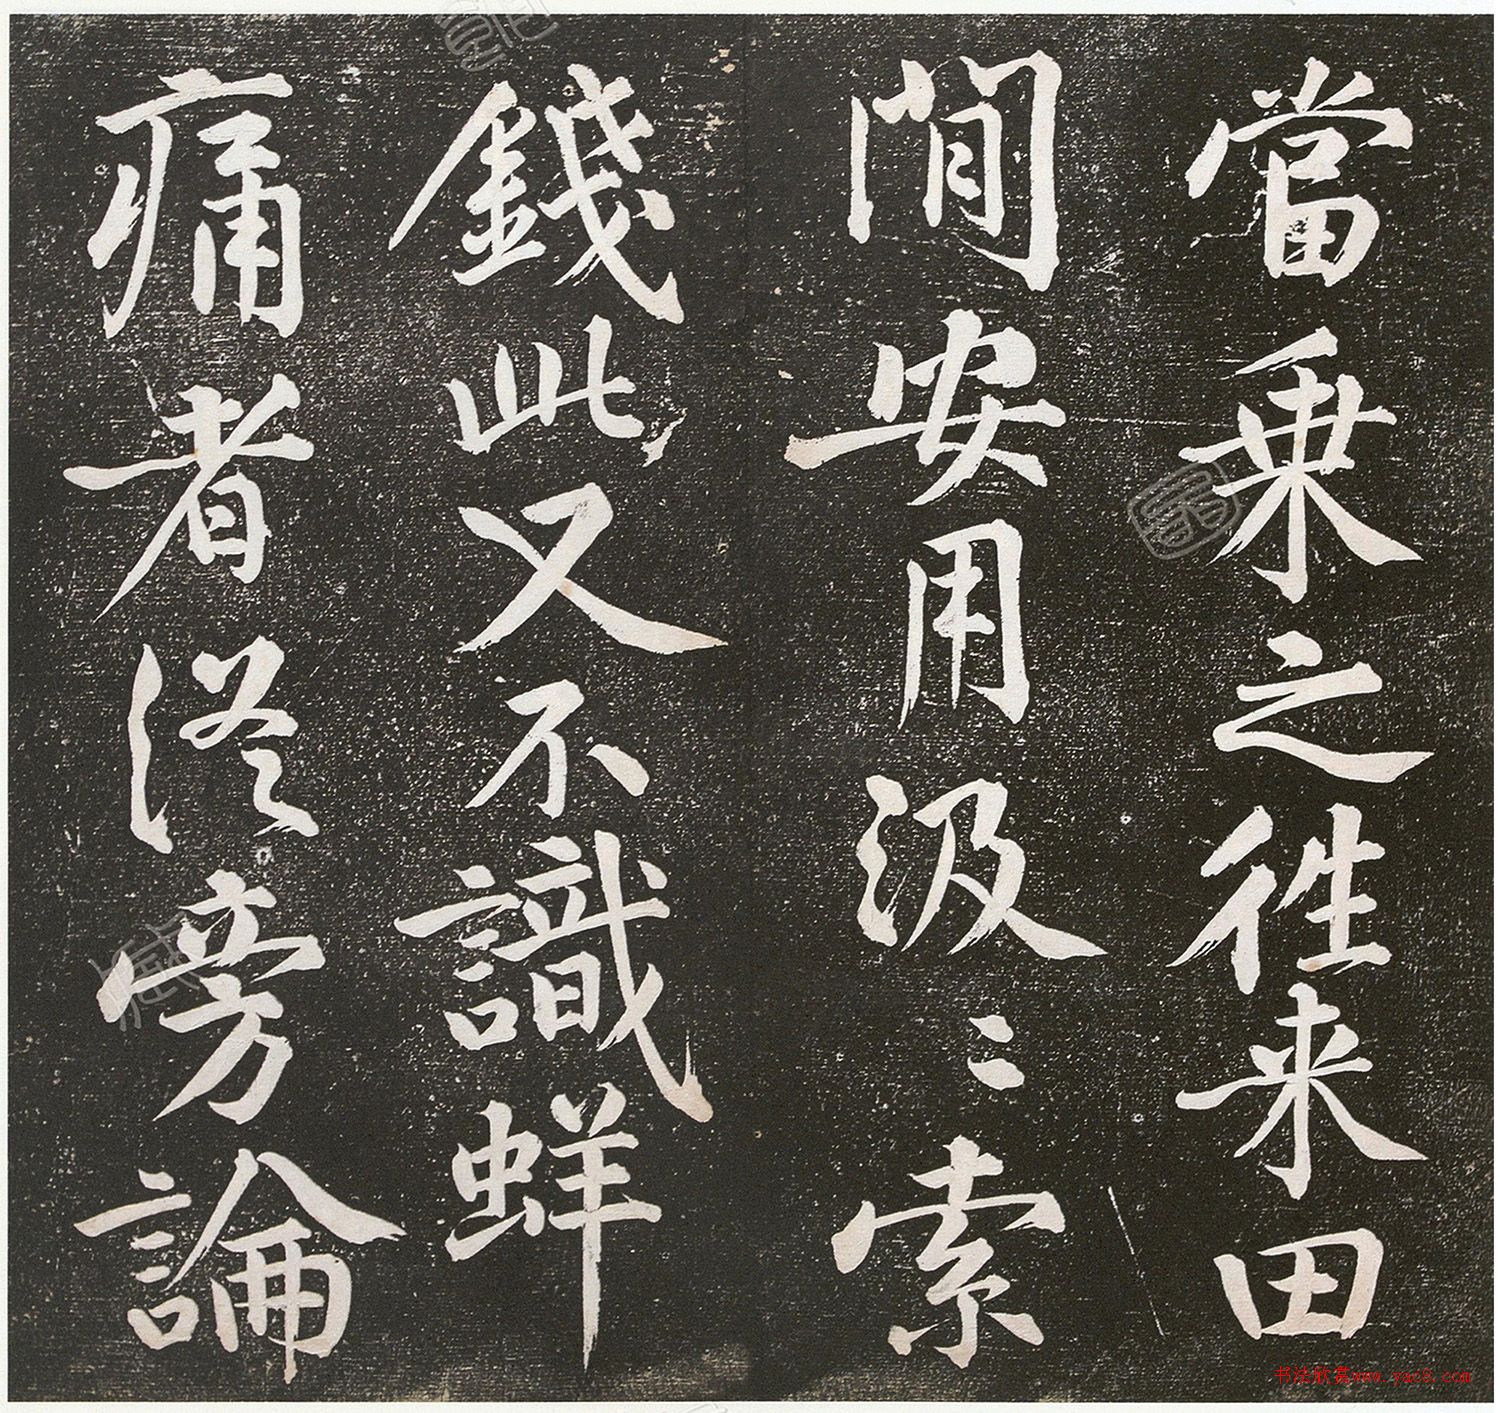 當乗之徃来田
閒安用汲〻索
錢此又不識蛘
痛者從旁論
书法欣赏www.yac8.com